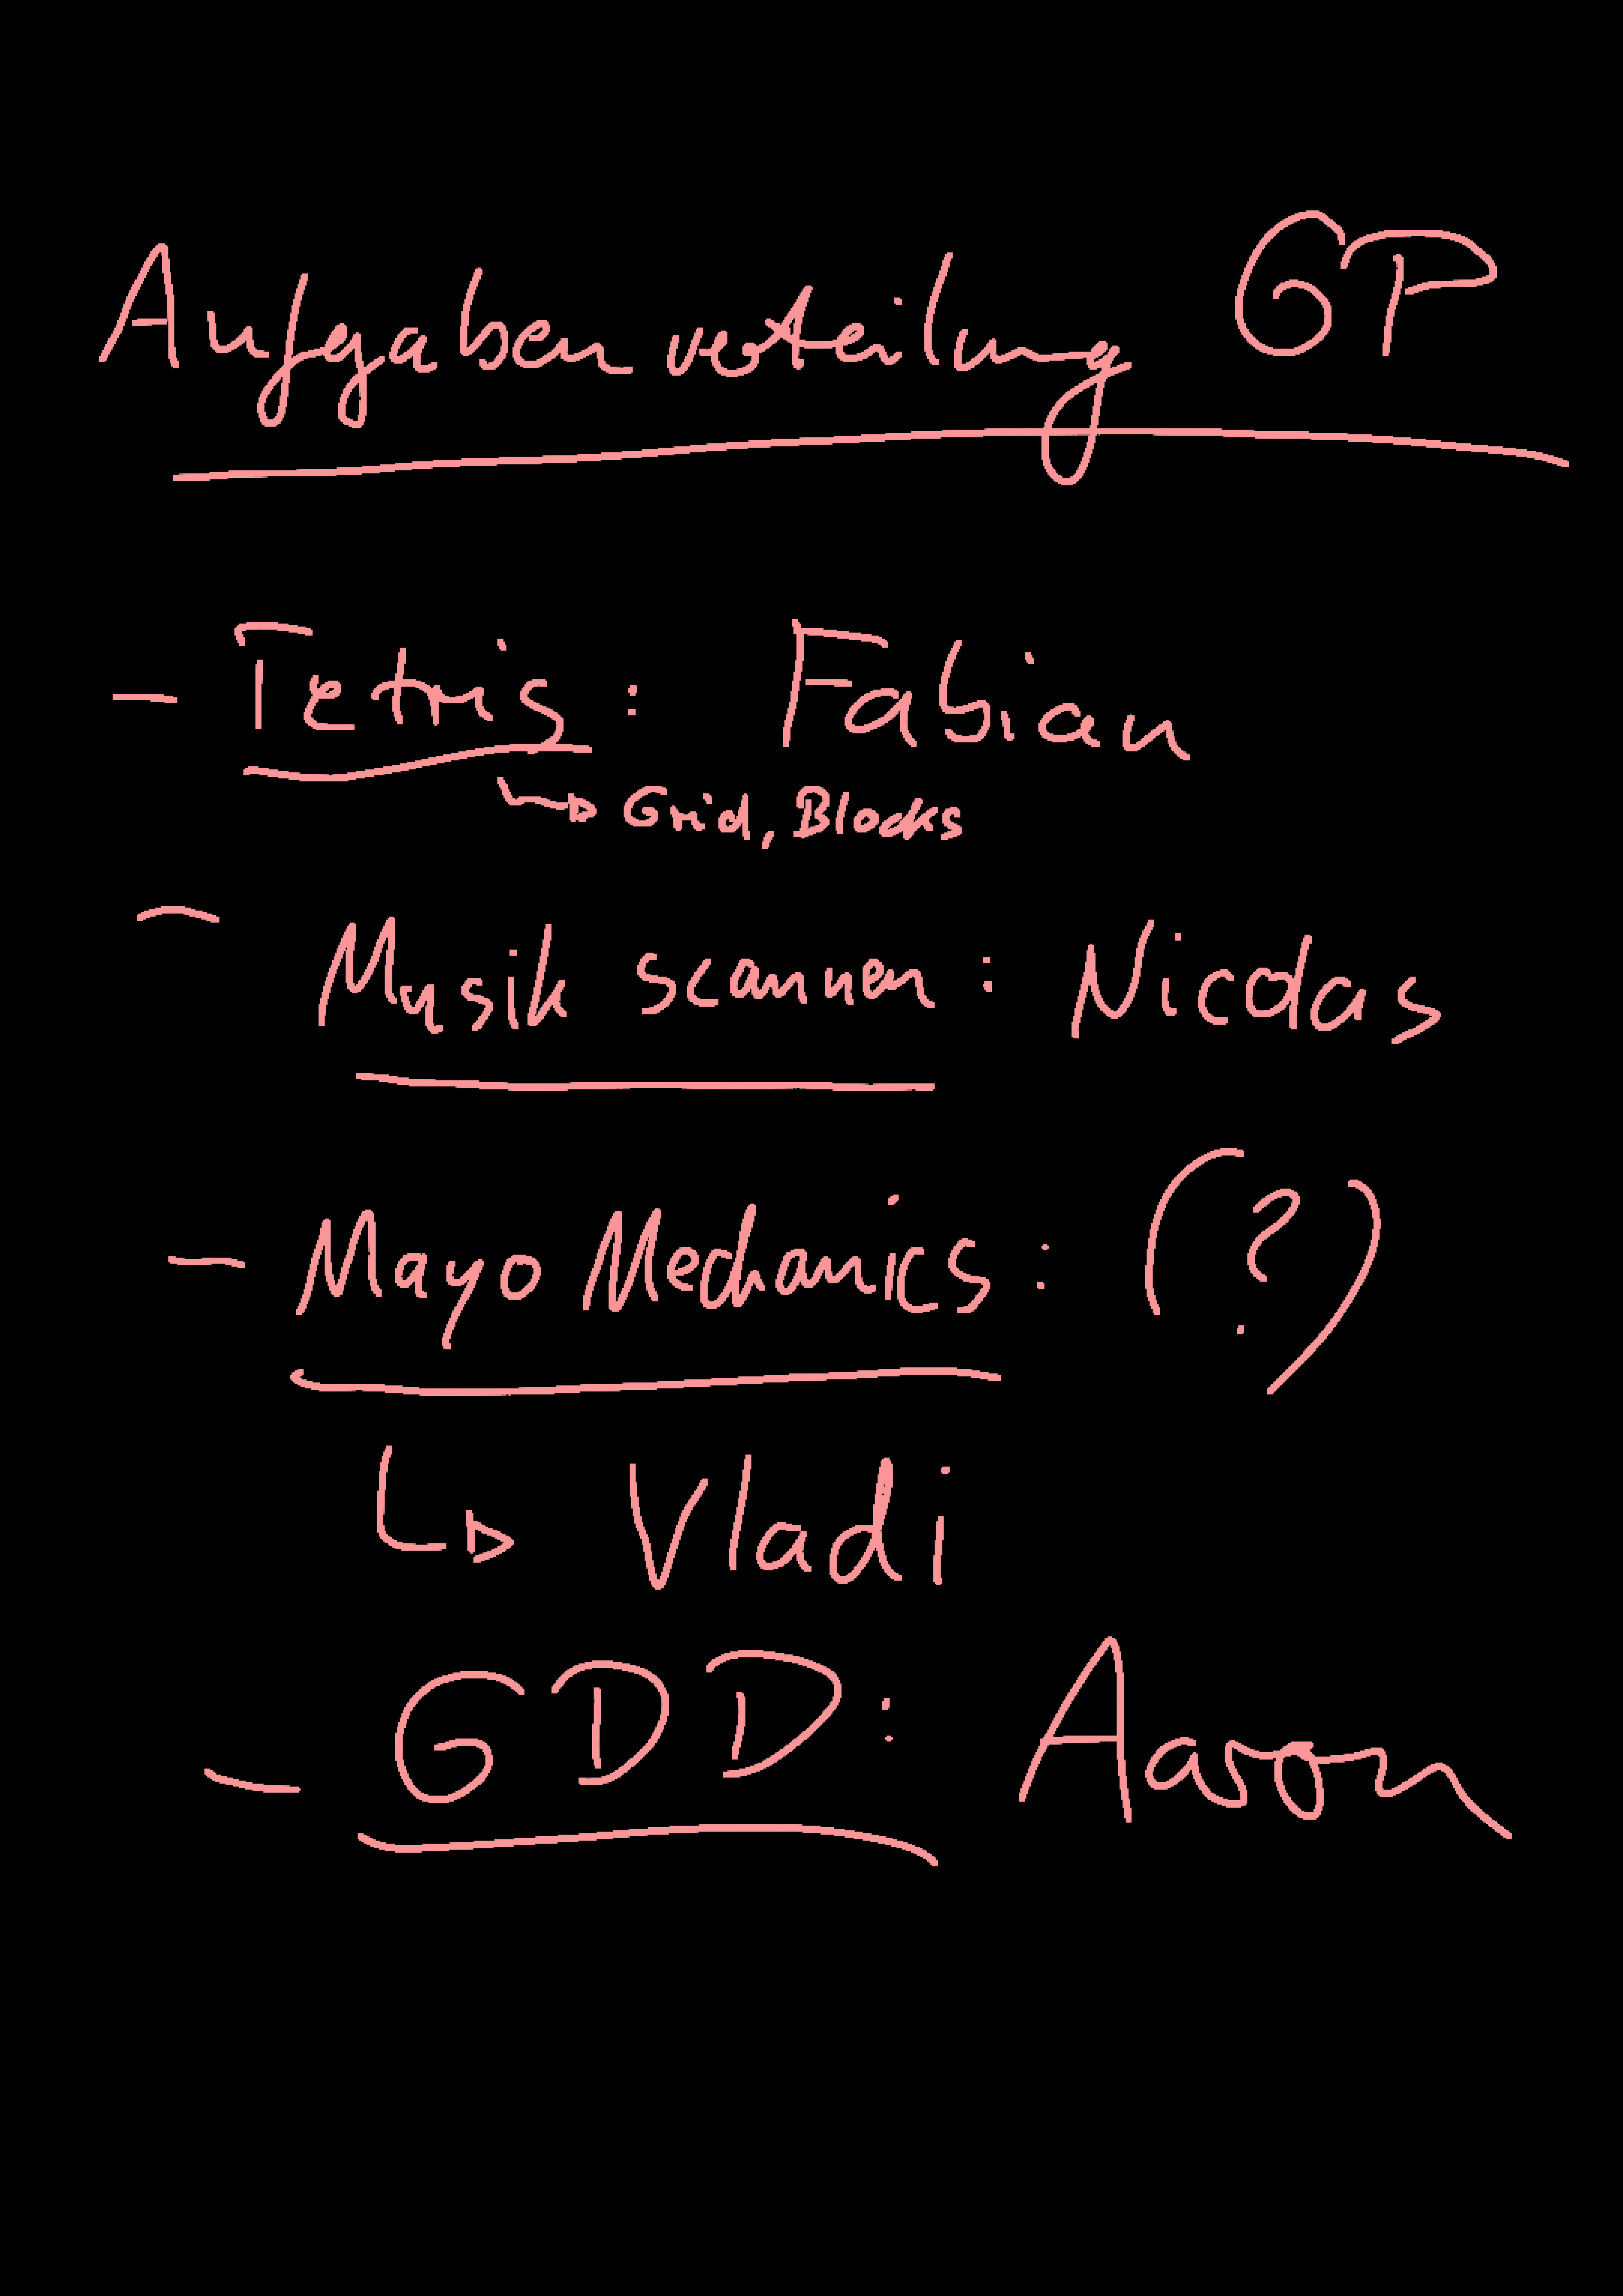 Aufgabenverteilung GP
- Tetris: Fabian
↳ Grid, Blocks
- Musik scannen: Nicolas
- Mayo Mechanics: (?)
↳ Vladi
- GDD: Aaron